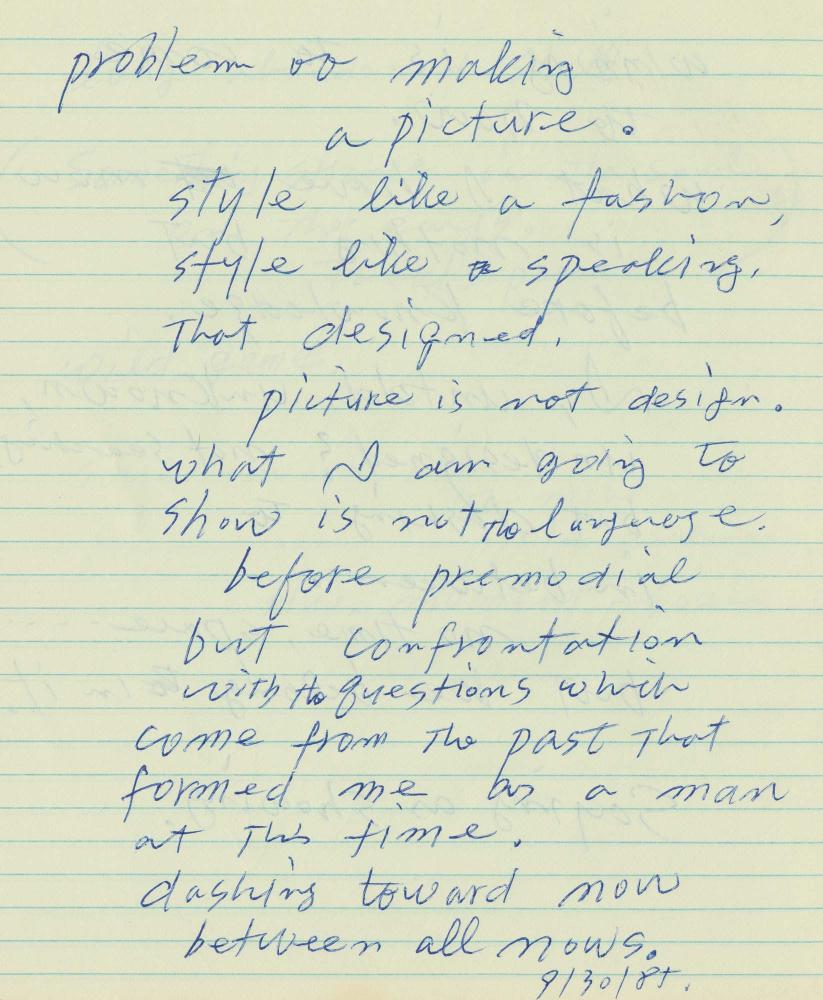 problem oo making
a picture.
style like a fashon,
style like speaking.
That designed.
picture is not design.
what I am going to
show is not the language.
before premodial
but confrontation
with the questions which
come from the past that
formed me as a man
at this time.
dashing toward now
between all nows.
9/30/85.